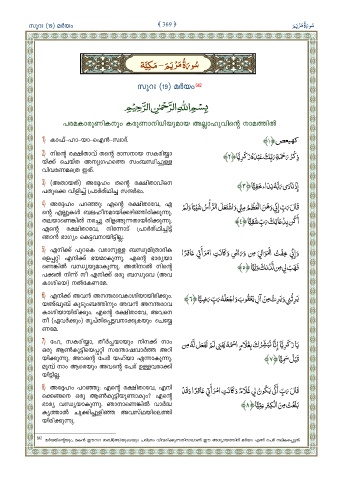 സൂറഃ (19) മർയം
( 369 )
سُورَةُ مَرْيَمَ
سُورَةُ مَرْيَمَ - مَكِّيَّة
സൂറഃ (19) മർയം
بِسْمِ اللَّهِ الرَّحْمَٰنِ الرَّحِيمِ
പരമകാരുണികനും കരുണാനിധിയുമായ അല്ലാഹുവിന്റെ നാമത്തിൽ
1) കാഫ്-ഹാ-യാ-ഐൻ-സ്വാദ്.
كهيعص ﴿١﴾
2) നിന്റെ രക്ഷിതാവ് തന്റെ ദാസനായ സകരിയ്യാ
യ്ക്ക് ചെയ്ത അനുഗ്രഹത്തെ സംബന്ധിച്ചുള്ള
വിവരണമത്രെ ഇത്.
ذِكْرُ رَحْمَتِ رَبِّكَ عَبْدَهُ زَكَرِيَّا ﴿٢﴾
3) (അതായത്) അദ്ദേഹം തന്റെ രക്ഷിതാവിനെ
പതുക്കെ വിളിച്ച് പ്രാർത്ഥിച്ച സന്ദർഭം.
إِذْ نَادَىٰ رَبَّهُ نِدَاءً خَفِيًّا ﴿٣﴾
4) അദ്ദേഹം പറഞ്ഞു: എന്റെ രക്ഷിതാവേ, എ
ന്റെ എല്ലുകൾ ബലഹീനമായിക്കഴിഞ്ഞിരിക്കുന്നു.
തലയാണെങ്കിൽ നരച്ചു തിളങ്ങുന്നതായിരിക്കുന്നു.
എന്റെ രക്ഷിതാവേ, നിന്നോട് പ്രാർത്ഥിച്ചിട്ട്
ഞാൻ ഭാഗ്യം കെട്ടവനായിട്ടില്ല.
قَالَ رَبِّ إِنِّي وَهَنَ الْعَظْمُ مِنِّي وَاشْتَعَلَ الرَّأْسُ شَيْبًا وَلَمْ
أَكُنْ بِدُعَائِكَ رَبِّ شَقِيًّا ﴿٤﴾
5) എനിക്ക് പുറകെ വരാനുള്ള ബന്ധുമിത്രാദിക
ളെപ്പറ്റി എനിക്ക് ഭയമാകുന്നു. എന്റെ ഭാര്യയാ
ണെങ്കിൽ വന്ധ്യയുമാകുന്നു. അതിനാൽ നിന്റെ
പക്കൽ നിന്ന് നീ എനിക്ക് ഒരു ബന്ധുവെ (അവ
കാശിയെ) നൽകേണമേ.
وَإِنِّي خِفْتُ الْمَوَالِيَ مِنْ وَرَائِي وَكَانَتِ امْرَأَتِي عَاقِرًا
فَهَبْ لِي مِنْ لَدُنْكَ وَلِيًّا ﴿٥﴾
6) എനിക്ക് അവൻ അനന്തരാവകാശിയായിരിക്കും.
യഅ്ഖൂബ് കുടുംബത്തിനും അവൻ അനന്തരാവ
കാശിയായിരിക്കും. എന്റെ രക്ഷിതാവേ, അവനെ
നീ (ഏവർക്കും) തൃപ്തിപ്പെട്ടവനാക്കുകയും ചെയ്യേ
ണമേ.
يَرِثُنِي وَيَرِثُ مِنْ آلِ يَعْقُوبَ وَاجْعَلْهُ رَبِّ رَضِيًّا ﴿٦﴾
7) ഹേ, സകരിയ്യാ, തീർച്ചയായും നിനക്ക് നാം
ഒരു ആൺകുട്ടിയെപ്പറ്റി സന്തോഷവാർത്ത അറി
യിക്കുന്നു. അവന്റെ പേർ യഹ്‌യാ എന്നാകുന്നു.
മുമ്പ് നാം ആരെയും അവന്റെ പേർ ഉള്ളവരാക്കി
യിട്ടില്ല.
يَا زَكَرِيَّا إِنَّا نُبَشِّرُكَ بِغُلَامٍ اسْمُهُ يَحْيَىٰ لَمْ نَجْعَلْ لَهُ مِنْ
قَبْلُ سَمِيًّا ﴿٧﴾
8) അദ്ദേഹം പറഞ്ഞു: എന്റെ രക്ഷിതാവേ, എനി
ക്കെങ്ങനെ ഒരു ആൺകുട്ടിയുണ്ടാകും? എന്റെ
ഭാര്യ വന്ധ്യയാകുന്നു. ഞാനാണെങ്കിൽ വാർദ്ധ
ക്യത്താൽ ചുക്കിച്ചുളിഞ്ഞ അവസ്ഥയിലെത്തി
യിരിക്കുന്നു.
قَالَ رَبِّ أَنَّىٰ يَكُونُ لِي غُلَامٌ وَكَانَتِ امْرَأَتِي عَاقِرًا وَقَدْ
بَلَغْتُ مِنَ الْكِبَرِ عِتِيًّا ﴿٨﴾